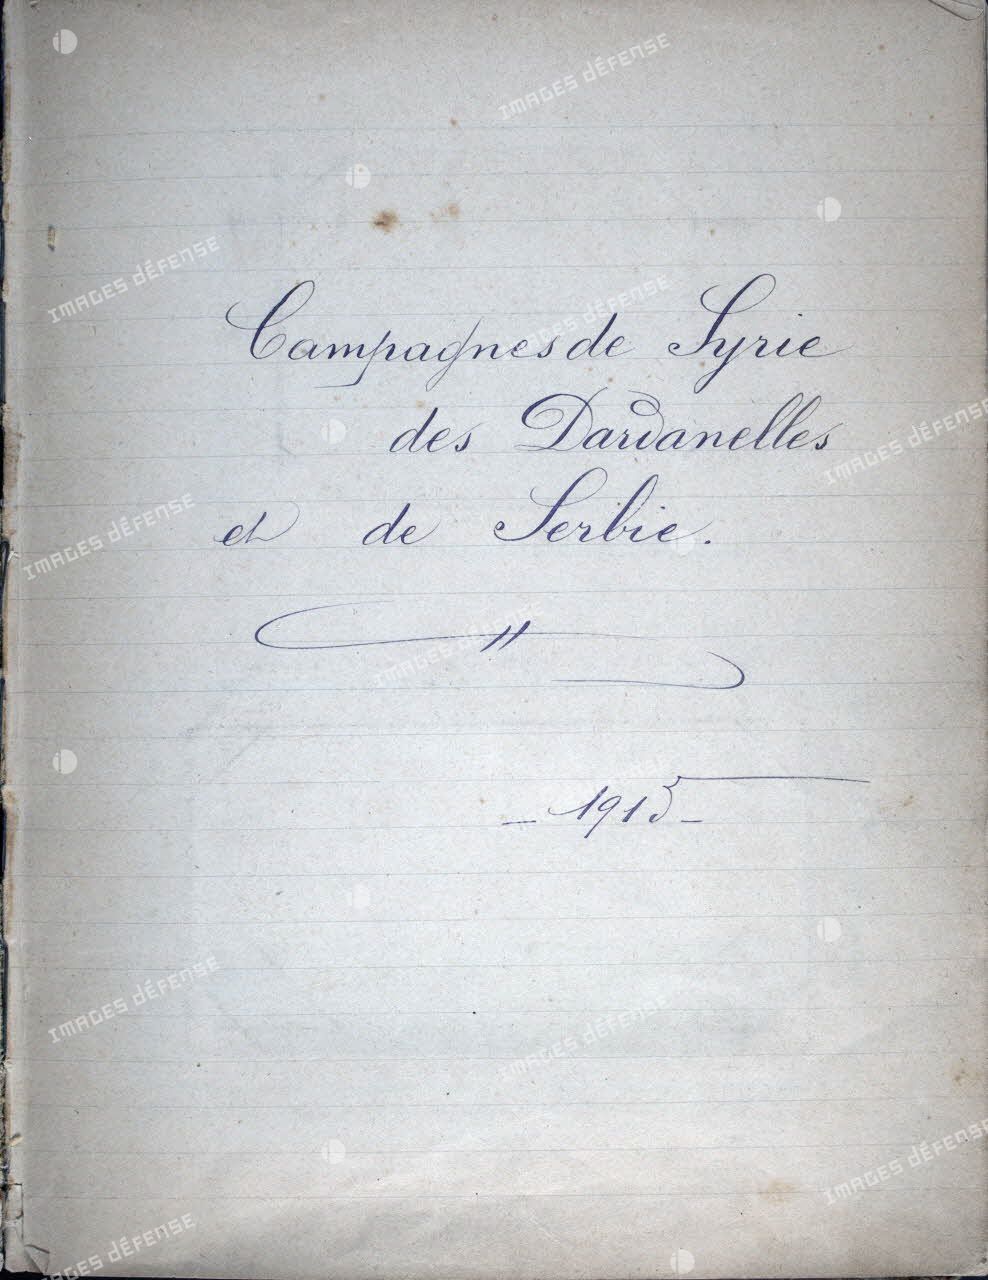 Campagnes de Syrie
des Dardanelles
et de Serbie.
- 1915 -
IMAGES DÉFENSE
IMAGES DÉFENSE
IMAGES DÉFENSE
IMAGES DÉFENSE
IMAGES DÉFENSE
IMAGES DÉFENSE
IMAGES DÉFENSE
IMAGES DÉFENSE
IMAGES DÉFENSE
IMAGES DÉFENSE